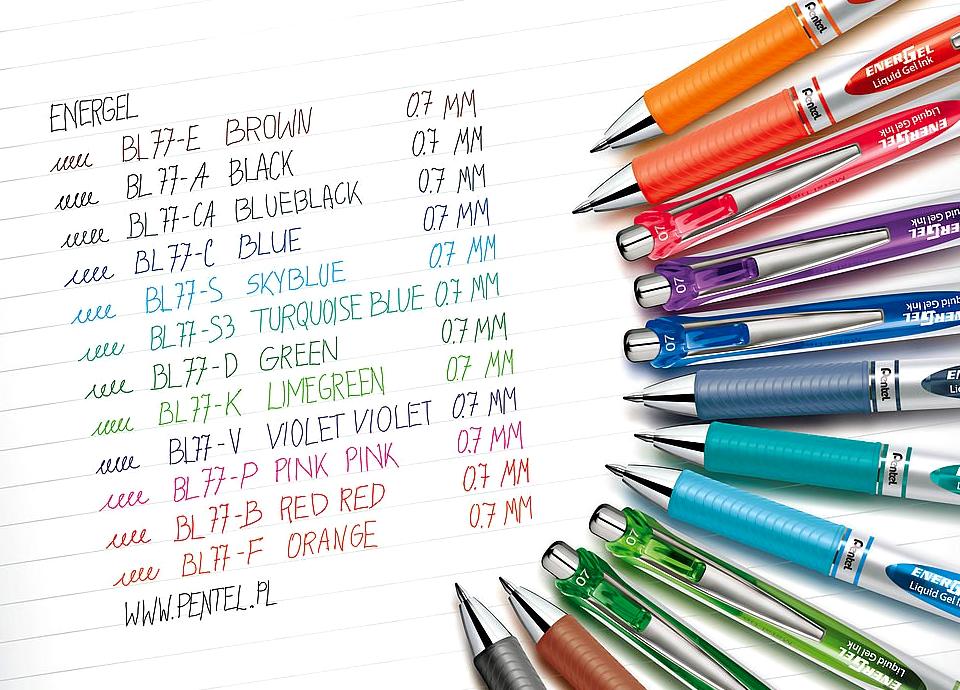 ENERGEL
BL77-E BROWN 0.7 MM
BL77-A BLACK 0.7 MM
BL77-CA BLUEBLACK 0.7 MM
BL77-C BLUE 0.7 MM
BL77-S SKYBLUE 0.7 MM
BL77-S3 TURQUOISE BLUE 0.7 MM
BL77-D GREEN 0.7 MM
BL77-K LIMEGREEN 0.7 MM
BL77-V VIOLET VIOLET 0.7 MM
BL77-P PINK PINK 0.7 MM
BL77-B RED RED 0.7 MM
BL77-F ORANGE 0.7 MM
WWW.PENTEL.PL
Pentel
Pentel
ENERGEL
Liquid Gel Ink
07
ENERGEL
Liquid Gel Ink
07
ENERGEL
Liquid Gel Ink
07
ENERGEL
Liquid Gel Ink
Pentel
Pentel
Pentel
ENERGEL
Liquid Gel Ink
07
ENERGEL
Liquid Gel Ink
07